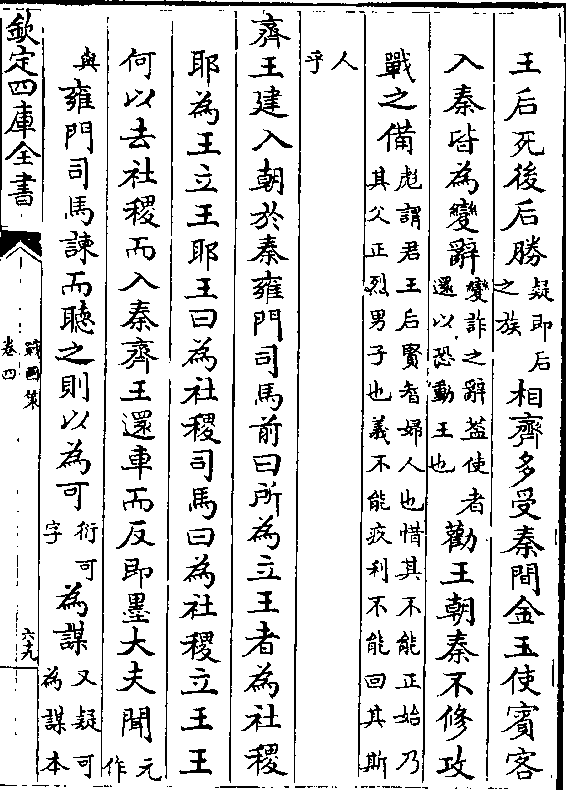 王后死後后勝疑即后之族相齊多受秦間金玉使賓客
入秦皆為變辭變詐之辭葢使者還以恐動王也勸王朝秦不修攻
戰之備彪謂君王后賢智婦人也惜其不能正始乃其父正烈男子也義不能疚利不能回其斯
人乎
齊王建入朝於秦雍門司馬前曰所為立王者為社稷
耶為王立王耶王曰為社稷司馬曰為社稷立王王
何以去社稷而入秦齊王還車而反即墨大夫聞元作
與雍門司馬諫而聽之則以為可衍可字為謀又疑可為謀本
欽定四庫全書
戰國策
卷四
六九